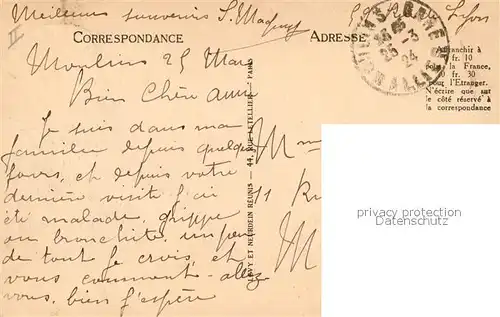 Meilleurs souvenirs S. 
Lyon
CORRESPONDANCE
ADRESSE
Moulins 25 Mars
Bien Chère amie
Je suis dans ma
famille depuis quelques
jours, et depuis votre
dernière visite j'ai
été malade, grippe
ou bronchite, un peu
de tout je crois, et
vous comment allez
vous, bien j'espère
LEVY ET NEURDEIN RÉUNIS — 44, RUE LETELLIER — PARIS
MOULINS-S-
GARE
25-3
24
ALLIER
Affranchir à
fr. 10
pour la France,
fr. 30
pour l'Etranger.
N'écrire que sur
le côté réservé à
la correspondance
Mme
11 Ru
M
privacy protection
Datenschutz